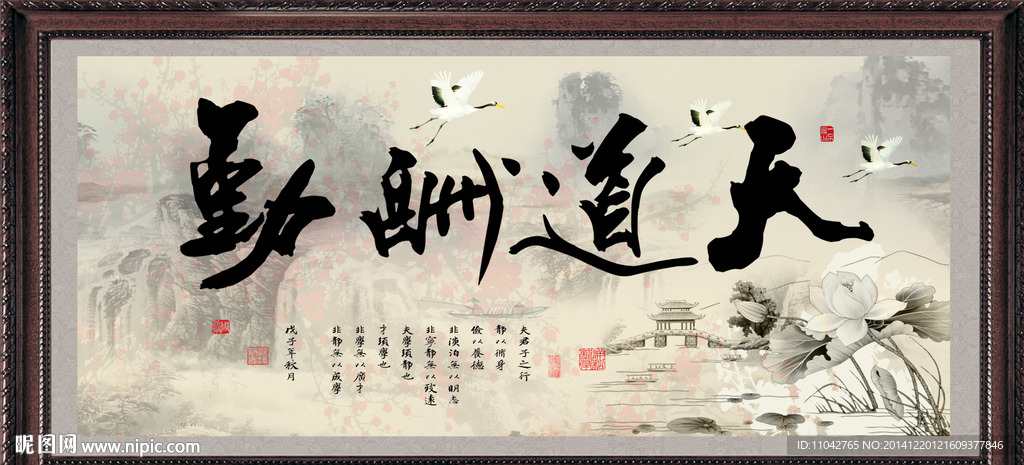 天道酬勤
夫君子之行
静以脩身
儉以養德
非淡泊無以明志
非寧静無以致遠
夫學須静也
才須學也
非學無以廣才
非静無以成學
戊子年秋月
昵图网 www.nipic.com
ID:11042765 NO:20141220121609377846